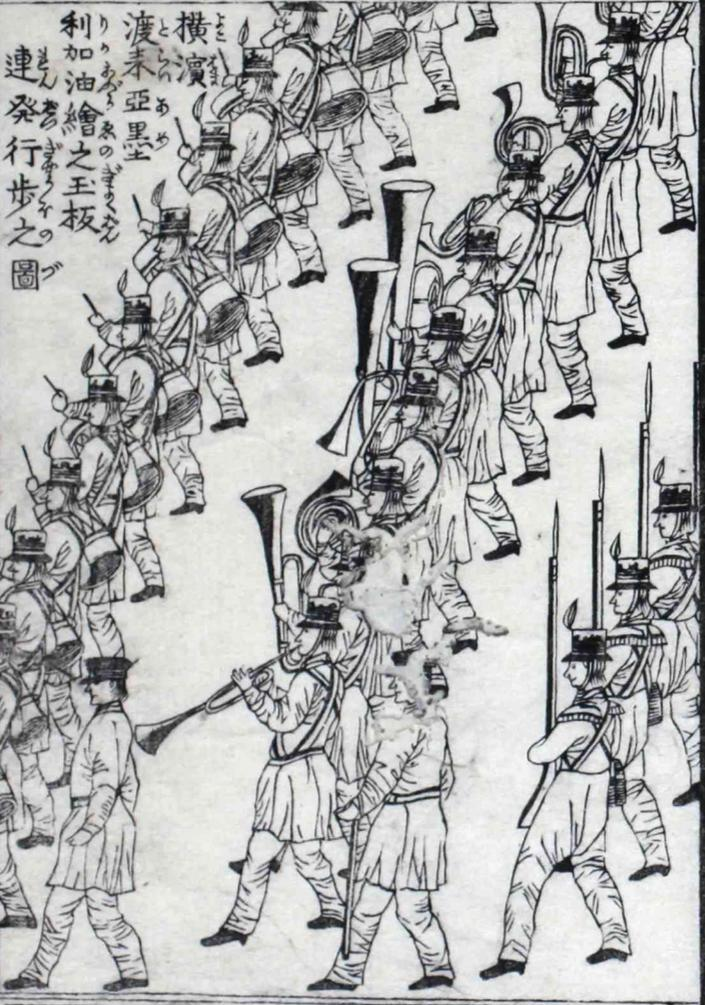 横濱
渡来亞墨
利加油繪之玉板
連発行歩之圖